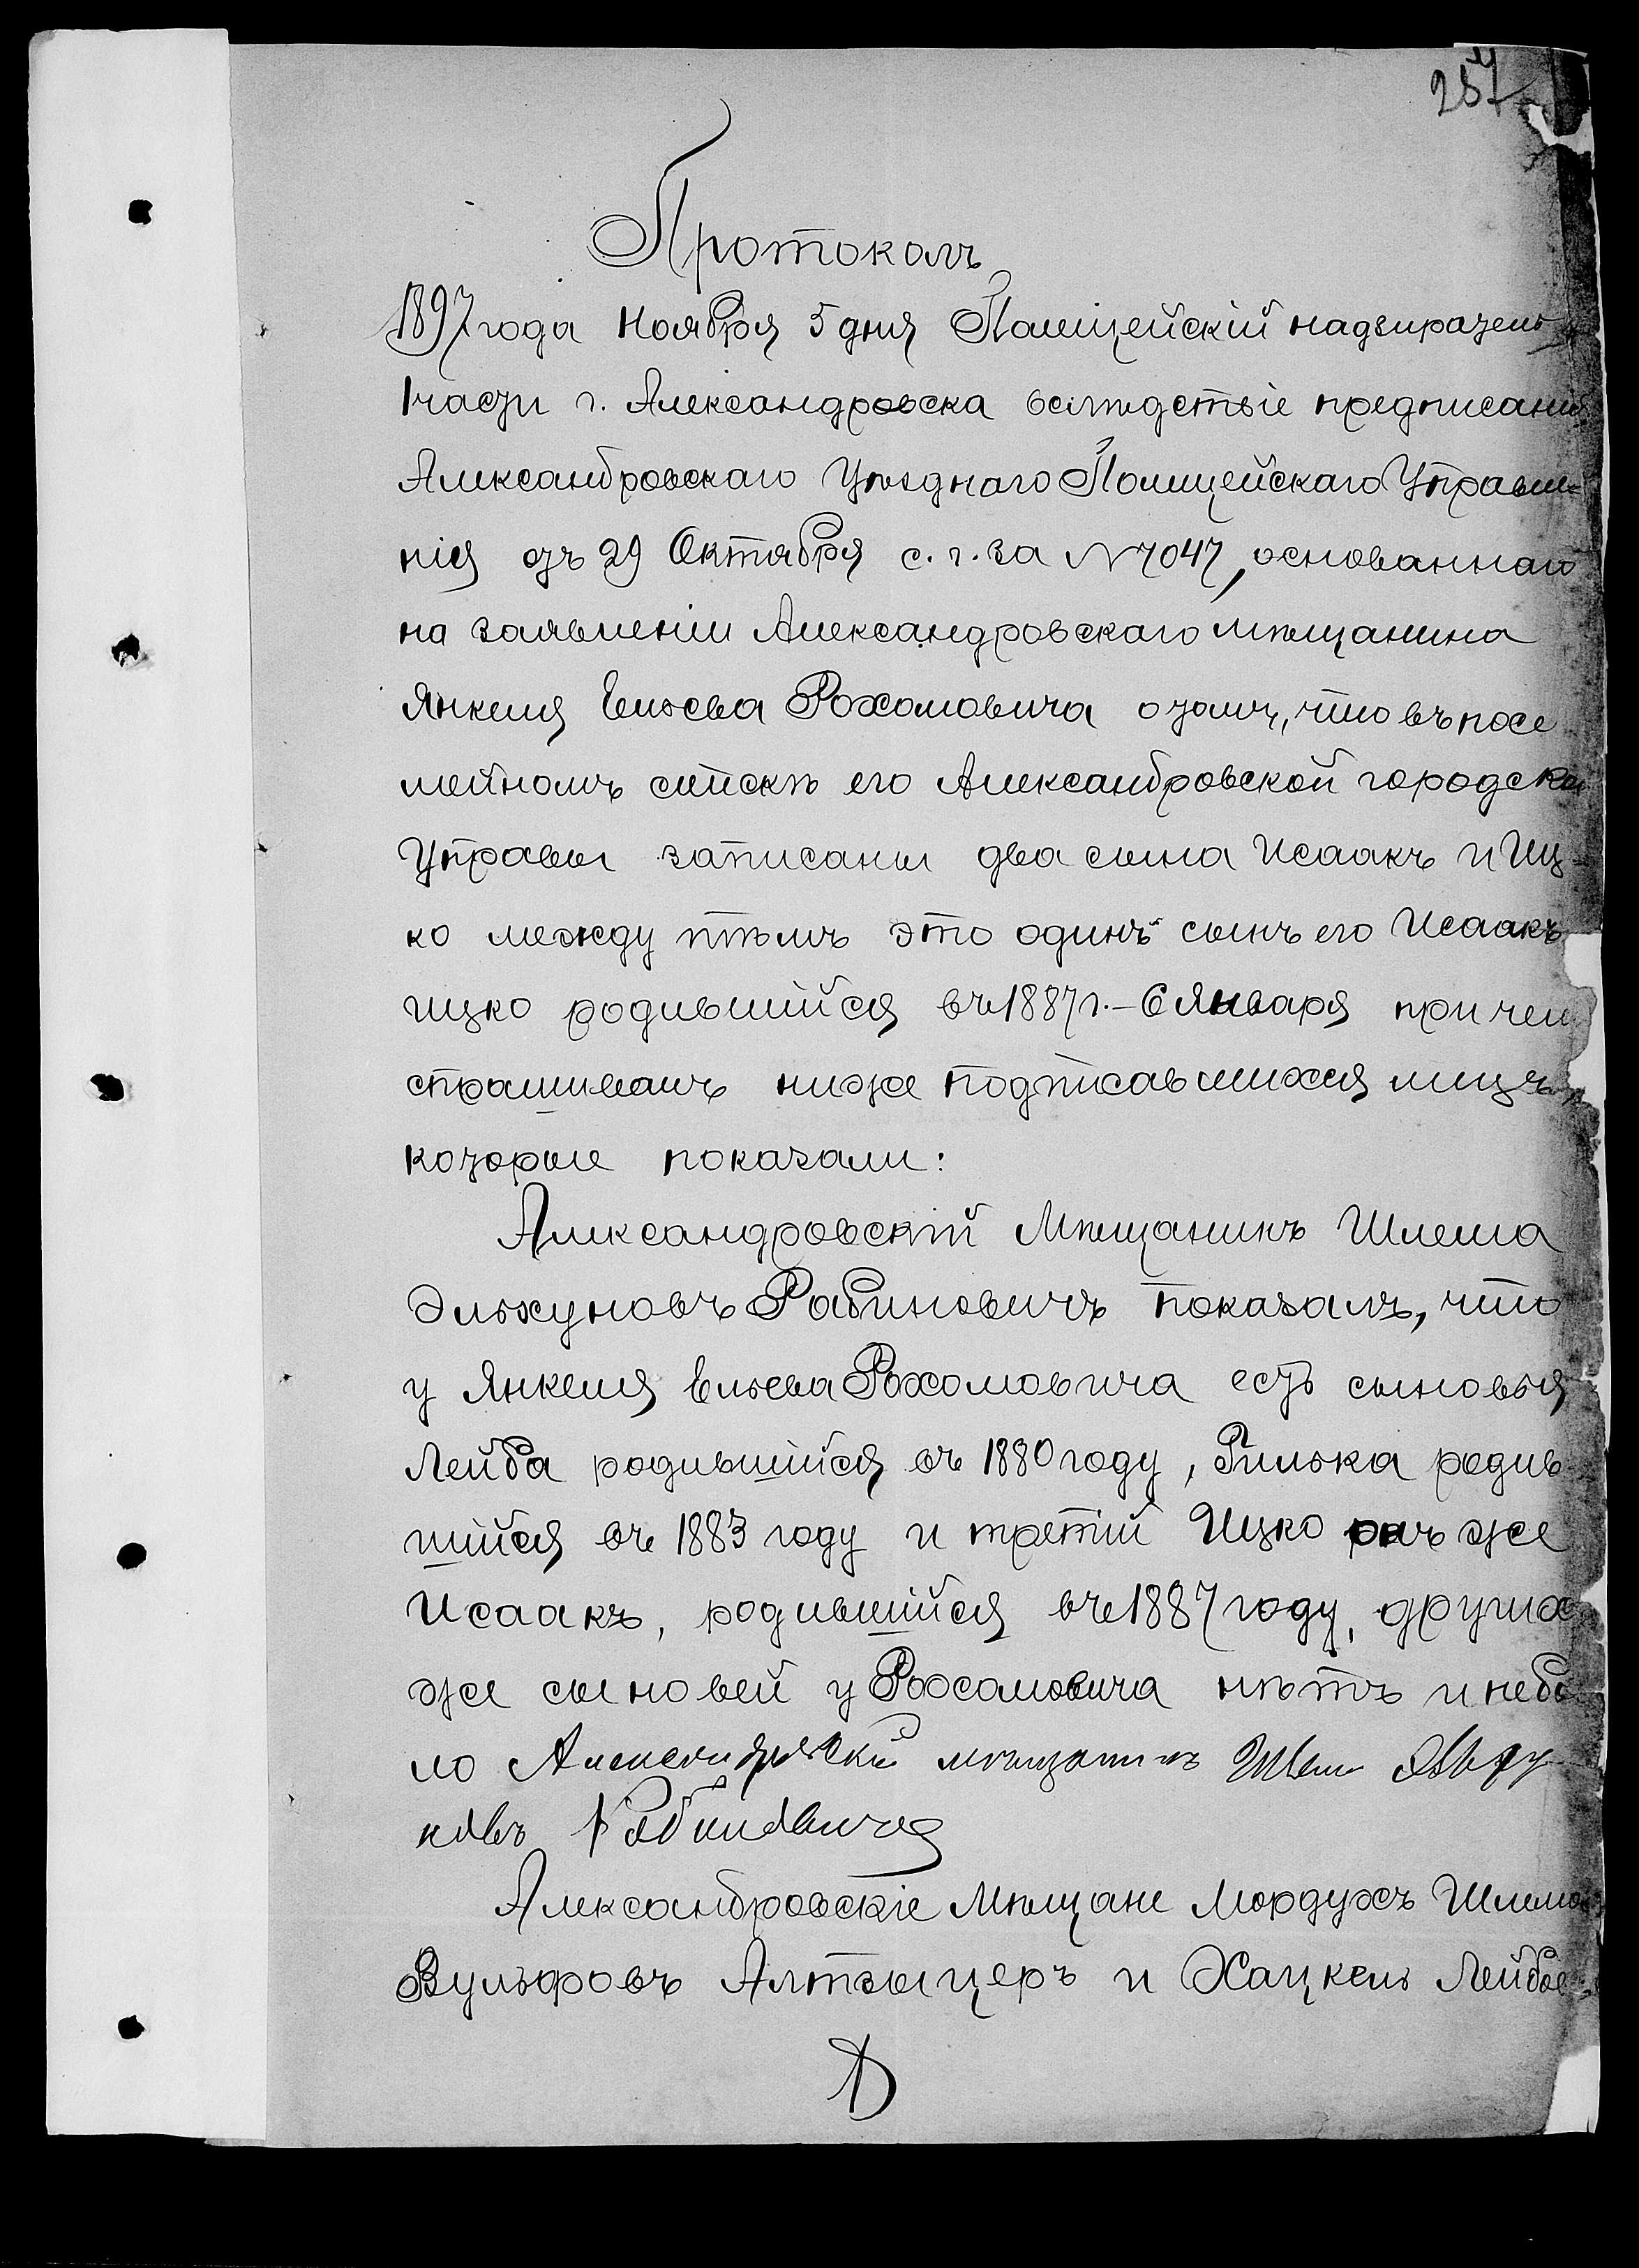 257
Протоколъ
1897 года Ноября 5 дня Полицейскій надзиратель
1 части г. Александровска вслѣдствіе предписанія
Александровскаго Уѣзднаго Полицейскаго Управле=
нія отъ 29 Октября с. г. за № 7047, основаннаго
на заявленіи Александровскаго мѣщанина
Янкеля Ельева Рохомовича о томъ, что въ посе
мейномъ спискѣ его Александровской городской
Управы записаны два сына Исаакъ и Иц-
ко между тѣмъ это одинъ сынъ его Исаакъ
Ицко родившійся въ 1887 г. – 6 Января причемъ
спрашивалъ ниже подписавшихся лицъ,
которые показали:
Александровскій Мѣщанинъ Шлема
Эльхуновъ Рабиновичъ показалъ, что
у Янкеля Ельева Рохомовича есть сыновья
Лейба родившійся въ 1880 году, Пилька родив-
шійся въ 1883 году и третій Ицко онъ же
Исаакъ, родившійся въ 1887 году, другихъ
же сыновей у Рохомовича нѣтъ и небы
ло Александровскій мѣщанинъ Шлема Эльху
новъ Рабиновичъ
Александровскіе Мѣщане Мордухъ Шлемовъ
Вульфовъ Алтзыцеръ и Хацкель Лейбов